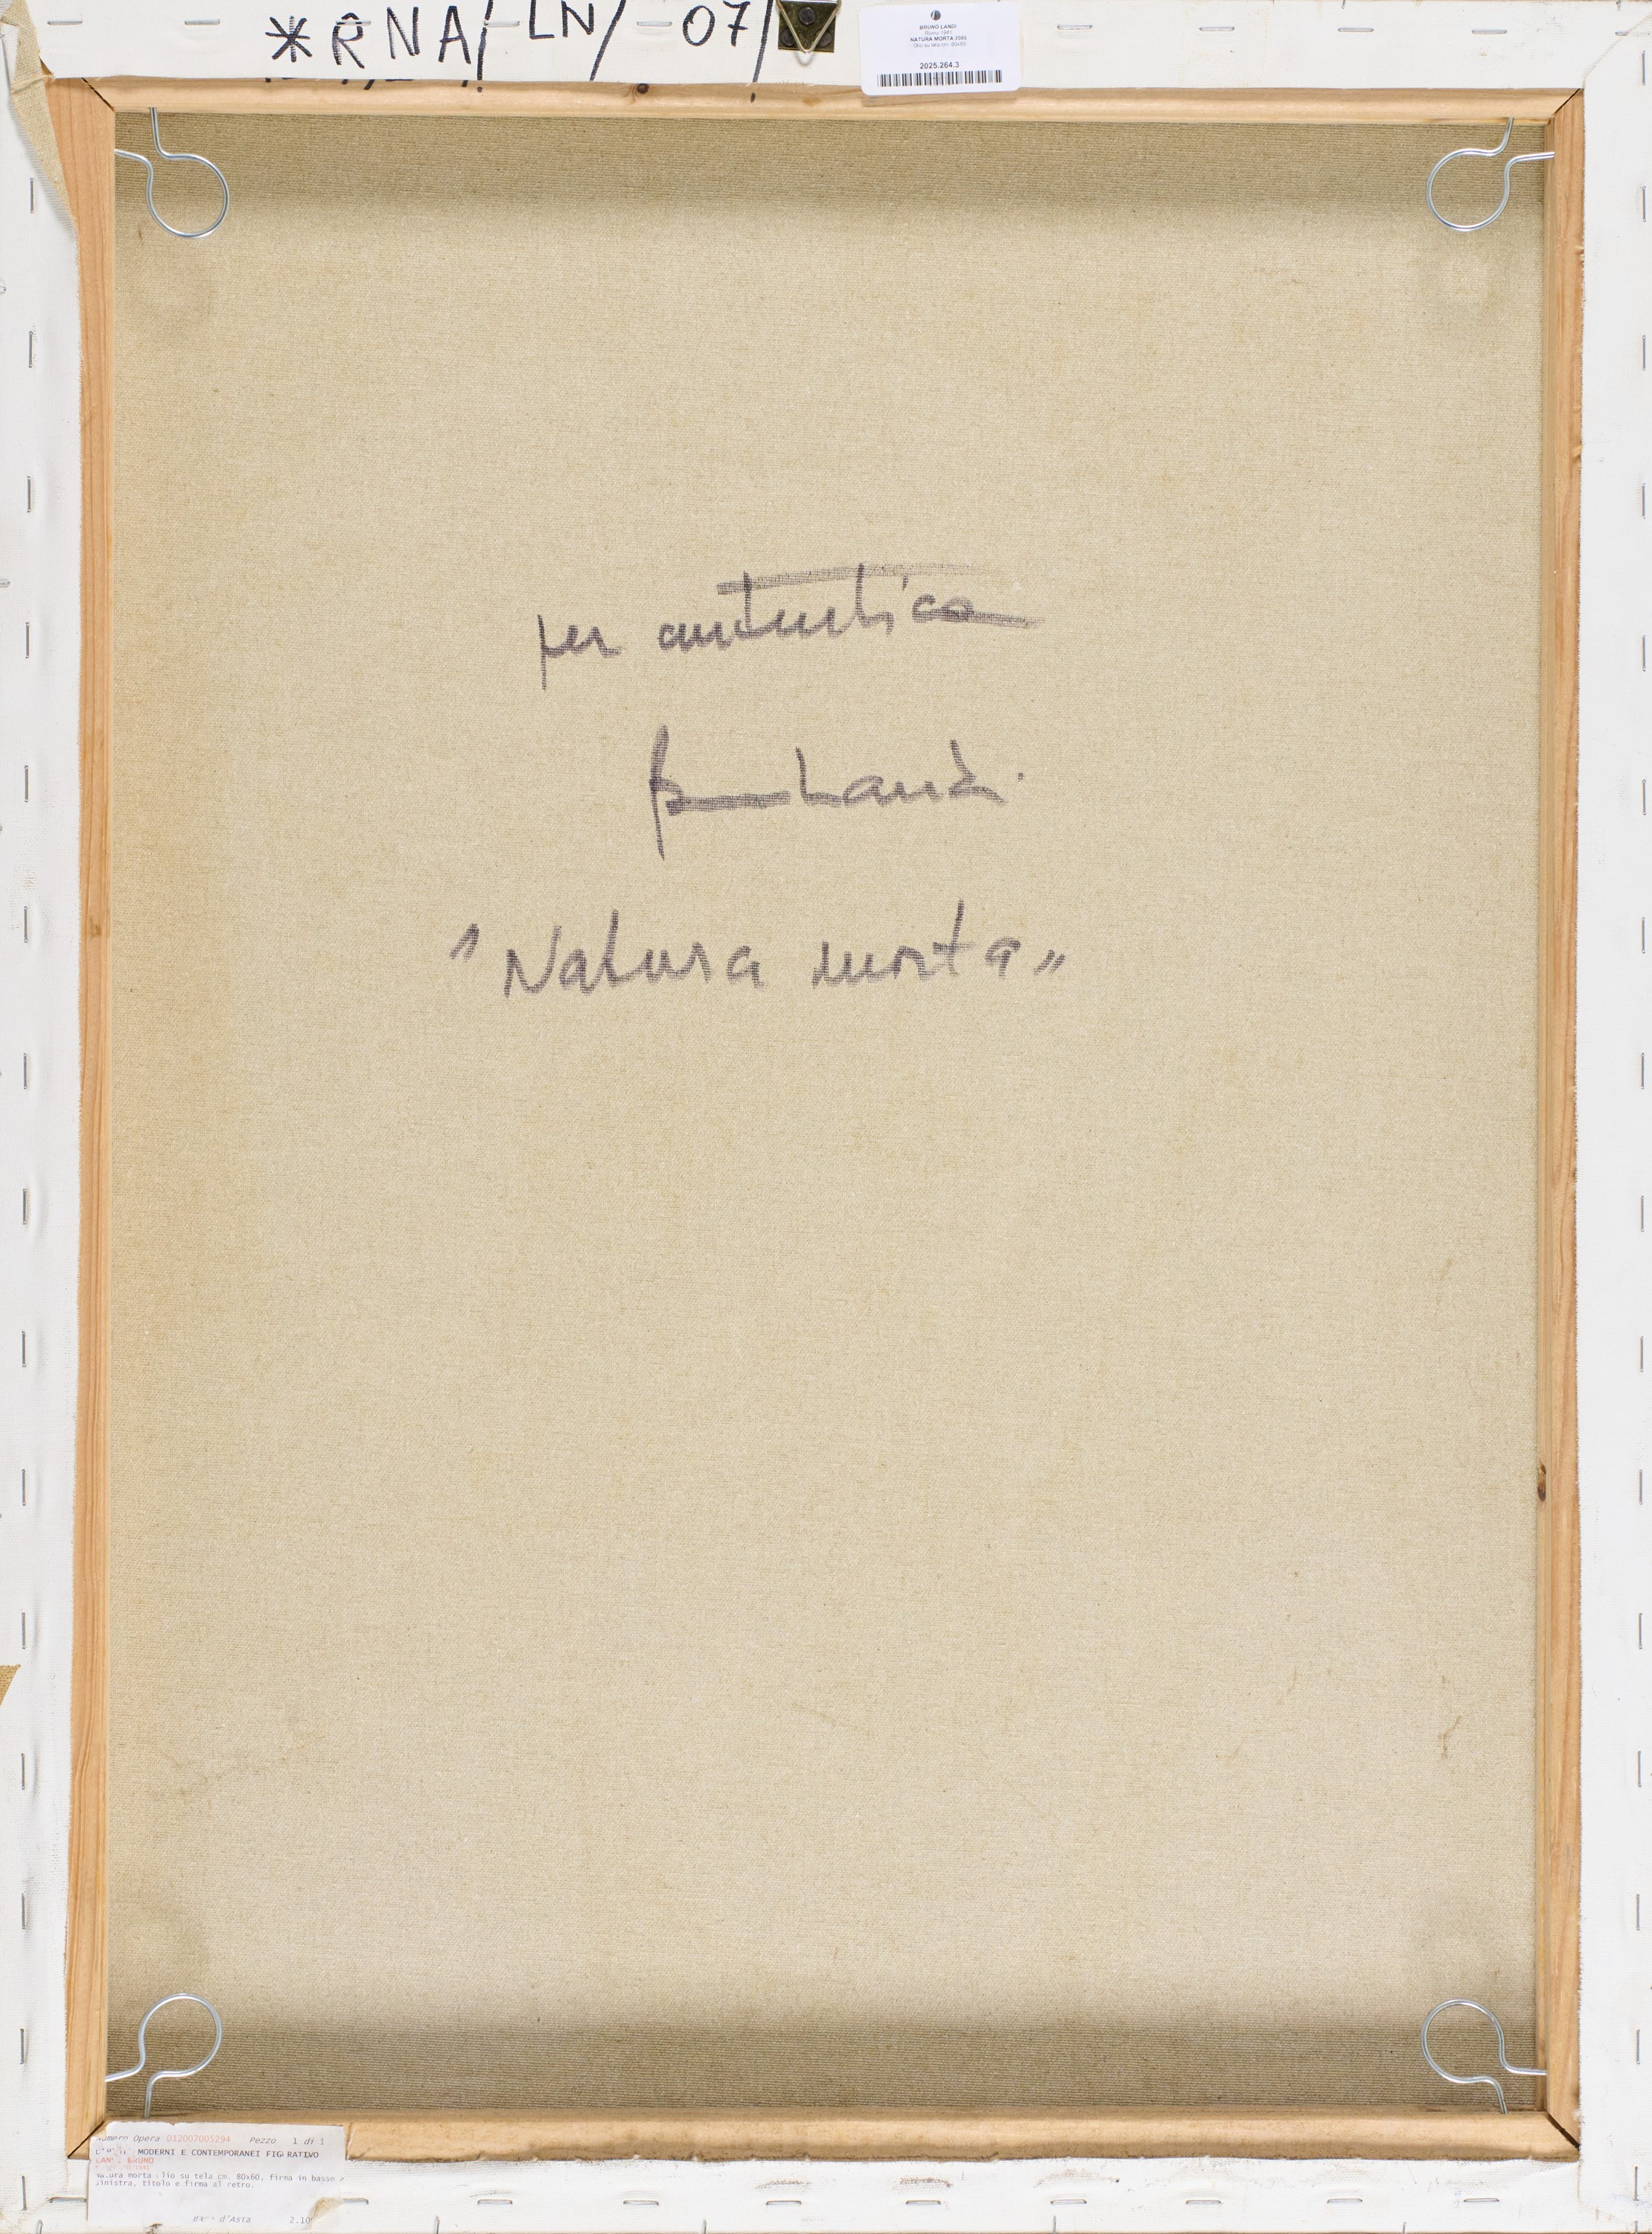 *RNA/ LN/ 07/
BRUNO LANDI
Roma 1941
NATURA MORTA
Olio su tela cm. 80x60
2025.264.3
per autentica
Bruno Landi
"Natura morta"
Numero Opera 012007005294 Pezzo 1 di 1
MODERNI E CONTEMPORANEI FIGURATIVO
LANDI BRUNO
Natura morta olio su tela cm. 80x60, firma in basso a
sinistra, titolo e firma al retro.
d'Asta